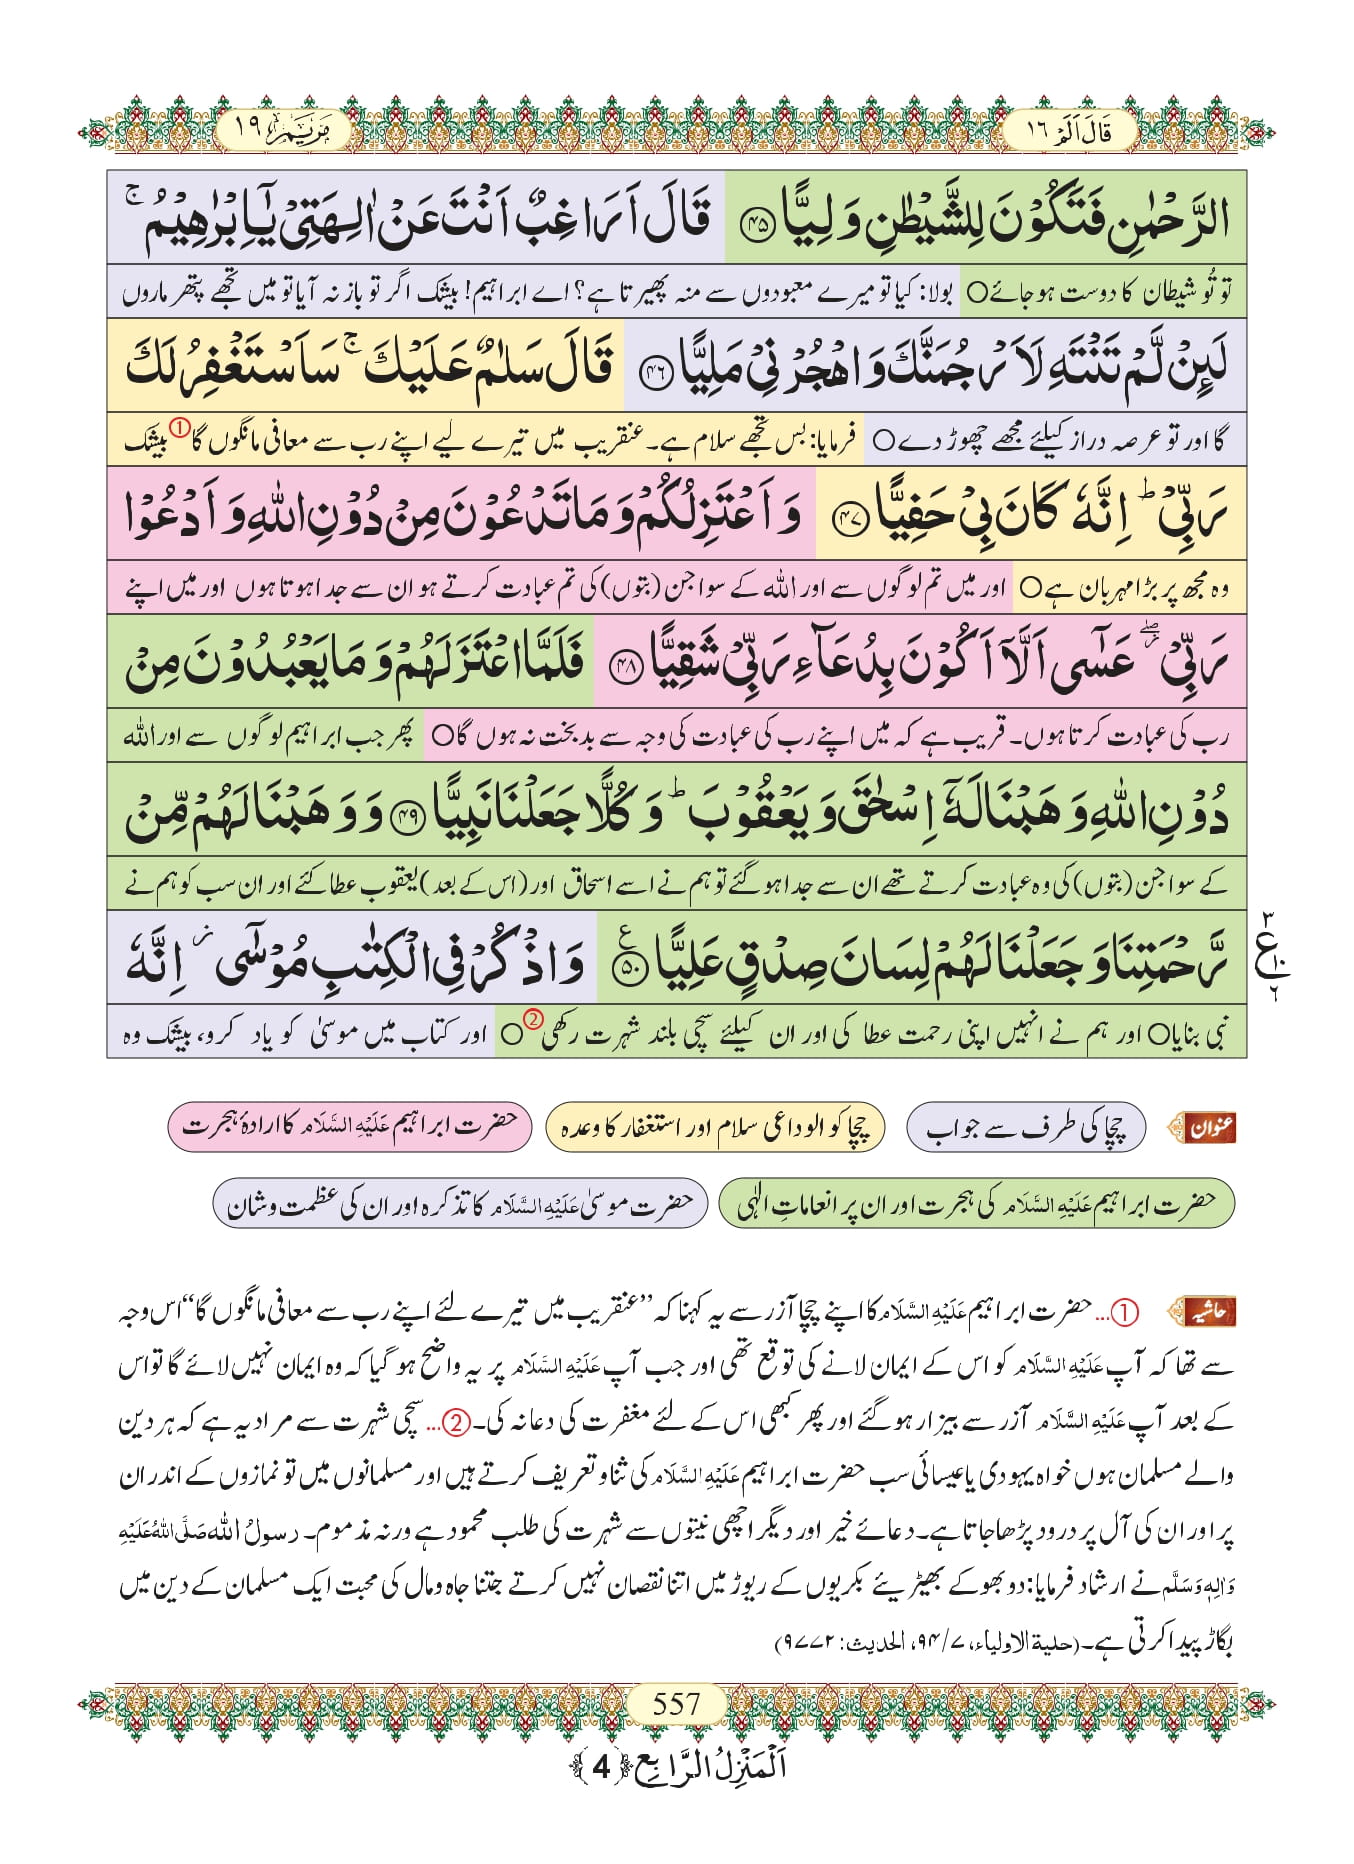 قَالَ اَلَمْ ١٦
مَرْيَم ١٩
الرَّحْمٰنِ فَتَكُوْنَ لِلشَّيْطٰنِ وَلِيًّا ﴿۴۵﴾ قَالَ اَرَاغِبٌ اَنْتَ عَنْ اٰلِهَتِيْ يٰۤاِبْرٰهِيْمُ ۚ
تو تُو شیطان کا دوست ہوجائے○ بولا: کیا تو میرے معبودوں سے منہ پھیرتا ہے؟ اے ابراہیم! بیشک اگر تو باز نہ آیا تو میں تجھے پتھر ماروں
لَىِٕنْ لَّمْ تَنْتَهِ لَاَرْجُمَنَّكَ وَاهْجُرْنِيْ مَلِيًّا ﴿۴۶﴾ قَالَ سَلٰمٌ عَلَيْكَ ۚ سَاَسْتَغْفِرُ لَكَ
گا اور تو عرصہ دراز کیلئے مجھے چھوڑ دے○ فرمایا: بس تجھے سلام ہے۔ عنقریب میں تیرے لیے اپنے رب سے معافی مانگوں گا① بیشک
رَبِّيْ ؕ اِنَّهٗ كَانَ بِيْ حَفِيًّا ﴿۴۷﴾ وَاَعْتَزِلُكُمْ وَمَا تَدْعُوْنَ مِنْ دُوْنِ اللّٰهِ وَاَدْعُوْا
وہ مجھ پر بڑا مہربان ہے○ اور میں تم لوگوں سے اور اللہ کے سوا جن (بتوں) کی تم عبادت کرتے ہو ان سے جدا ہوتا ہوں اور میں اپنے
رَبِّيْ ۖ٘ عَسٰۤى اَلَّاۤ اَكُوْنَ بِدُعَآءِ رَبِّيْ شَقِيًّا ﴿۴۸﴾ فَلَمَّا اعْتَزَلَهُمْ وَمَا يَعْبُدُوْنَ مِنْ
رب کی عبادت کرتا ہوں۔ قریب ہے کہ میں اپنے رب کی عبادت کی وجہ سے بدبخت نہ ہوں گا○ پھر جب ابراہیم لوگوں سے اور اللہ
دُوْنِ اللّٰهِ وَهَبْنَا لَهٗۤ اِسْحٰقَ وَيَعْقُوْبَ ؕ وَكُلًّا جَعَلْنَا نَبِيًّا ﴿۴۹﴾ وَوَهَبْنَا لَهُمْ مِّنْ
کے سوا جن (بتوں) کی وہ عبادت کرتے تھے ان سے جدا ہوگئے تو ہم نے اسے اسحاق اور (اس کے بعد) یعقوب عطا کئے اور ان سب کو ہم نے
رَّحْمَتِنَا وَجَعَلْنَا لَهُمْ لِسَانَ صِدْقٍ عَلِيًّا ﴿۵۰﴾ ع وَاذْكُرْ فِي الْكِتٰبِ مُوْسٰۤى ؗ اِنَّهٗ
٣ ع ١٠ ٦
نبی بنایا○ اور ہم نے انہیں اپنی رحمت عطا کی اور ان کیلئے سچی بلند شہرت رکھی②○ اور کتاب میں موسیٰ کو یاد کرو، بیشک وہ
عنوان چچا کی طرف سے جواب چچا کو الوداعی سلام اور استغفار کا وعدہ حضرت ابراہیم عَلَيْهِ السَّلَام کا ارادۂ ہجرت
حضرت ابراہیم عَلَيْهِ السَّلَام کی ہجرت اور ان پر انعاماتِ الٰہی حضرت موسیٰ عَلَيْهِ السَّلَام کا تذکرہ اور ان کی عظمت و شان
حاشیہ ①... حضرت ابراہیم عَلَيْهِ السَّلَام کا اپنے چچا آزر سے یہ کہنا کہ ”عنقریب میں تیرے لئے اپنے رب سے معافی مانگوں گا“ اس وجہ
سے تھا کہ آپ عَلَيْهِ السَّلَام کو اس کے ایمان لانے کی توقع تھی اور جب آپ عَلَيْهِ السَّلَام پر یہ واضح ہوگیا کہ وہ ایمان نہیں لائے گا تو اس
کے بعد آپ عَلَيْهِ السَّلَام آزر سے بیزار ہوگئے اور پھر کبھی اس کے لئے مغفرت کی دعا نہ کی۔ ②... سچی شہرت سے مراد یہ ہے کہ ہر دین
والے مسلمان ہوں خواہ یہودی یا عیسائی سب حضرت ابراہیم عَلَيْهِ السَّلَام کی ثنا و تعریف کرتے ہیں اور مسلمانوں میں تو نمازوں کے اندر ان
پر اور ان کی آل پر درود پڑھا جاتا ہے۔ دعائے خیر اور دیگر اچھی نیتوں سے شہرت کی طلب محمود ہے ورنہ مذموم۔ رسولُ اللہ صَلَّى اللهُ عَلَيْهِ
وَاٰلِهٖ وَسَلَّم نے ارشاد فرمایا: دو بھوکے بھیڑیئے بکریوں کے ریوڑ میں اتنا نقصان نہیں کرتے جتنا جاہ و مال کی محبت ایک مسلمان کے دین میں
بگاڑ پیدا کرتی ہے۔ (حلیة الاولیاء، ۷/۹۴، الحدیث: ۹۷۷۲)
557
اَلْمَنْزِلُ الرَّابِع ﴿4﴾